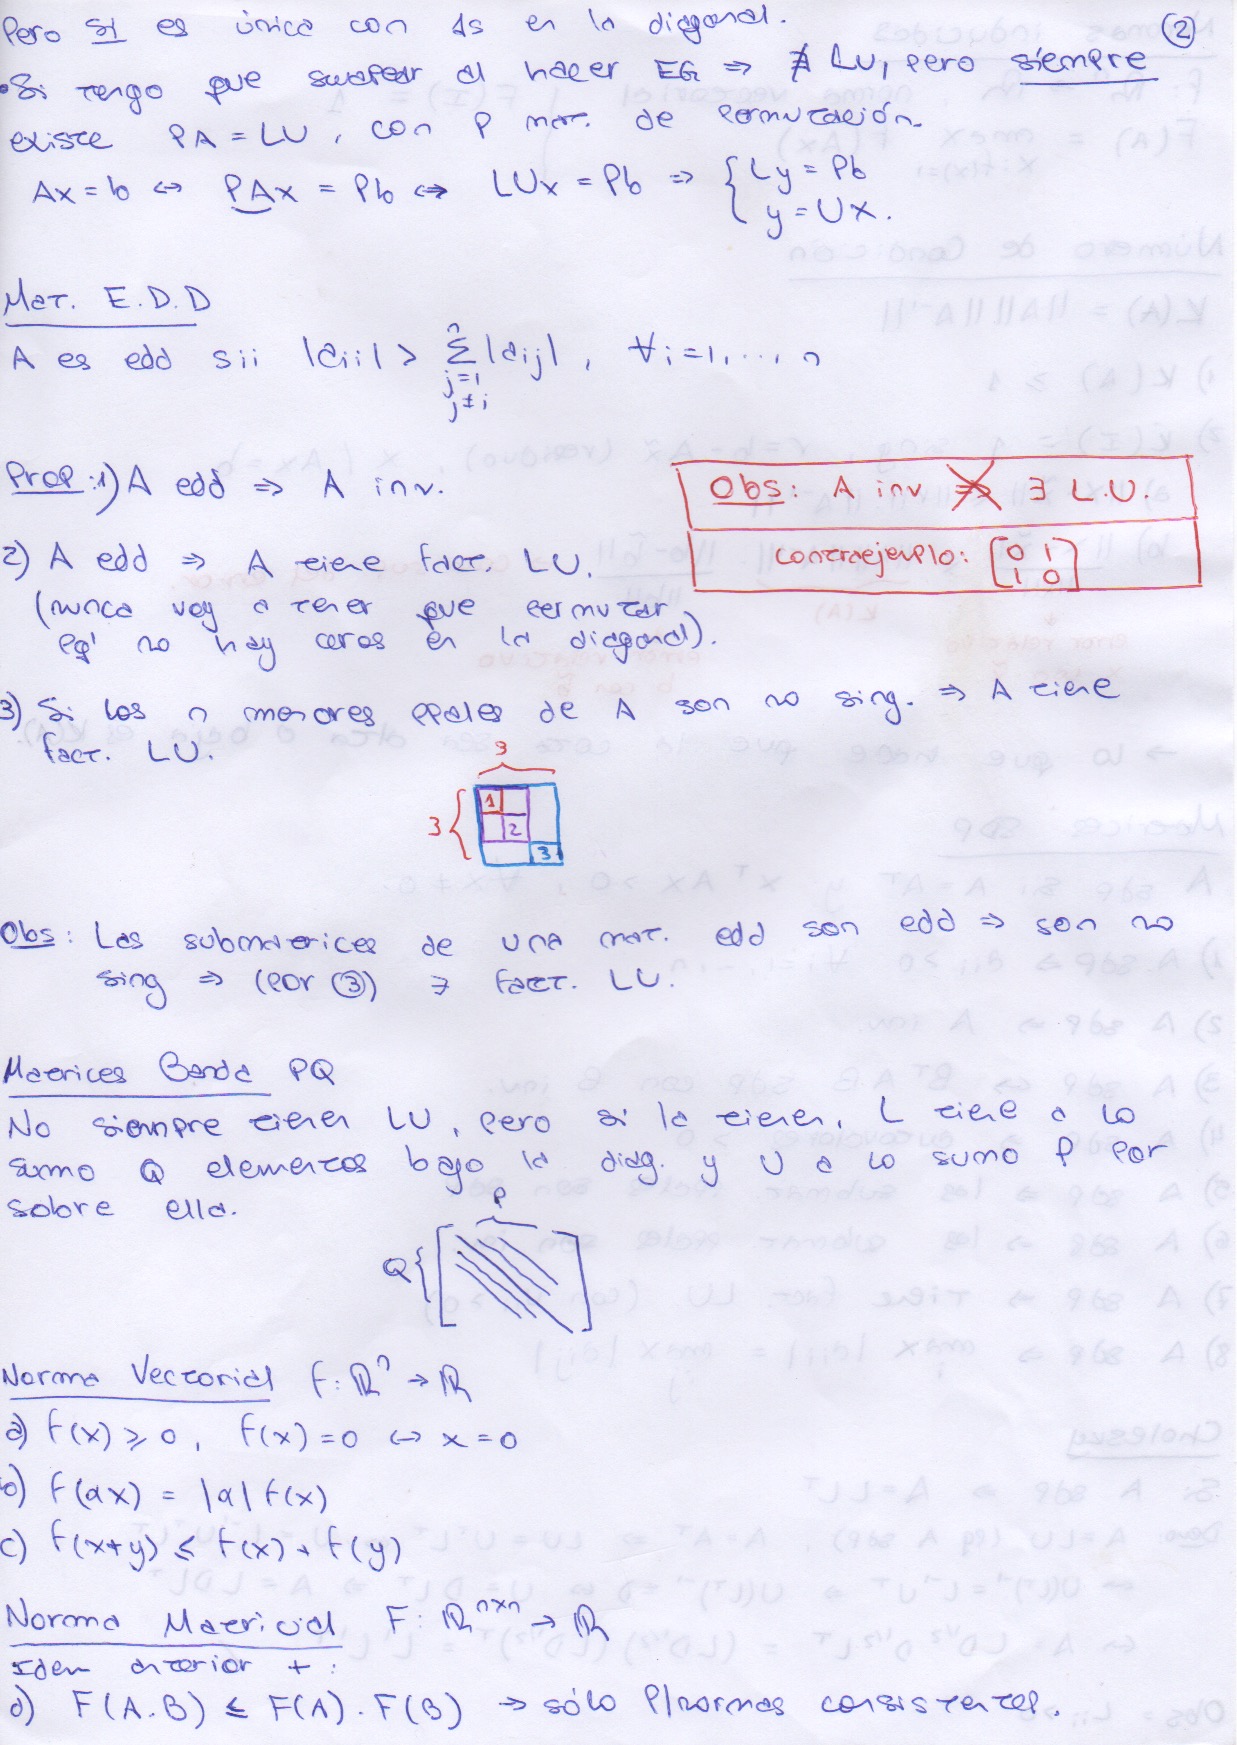 Pero sí es única con 1s en la diagonal.
②
• Si tengo que swapear al hacer EG ⇒ ∄ LU, pero siempre
existe PA = LU, con P mat. de permutación.
Ax = b ↔ PAx = Pb ↔ LUx = Pb ⇒ { Ly = Pb
y = Ux.
Mat. E.D.D
A es edd sii |aii| > Σ |aij|, ∀i=1,..., n
n
j=1
j≠i
Prop: 1) A edd ⇒ A inv.
Obs: A inv ⇏ ∃ L.U.
contraejemplo: [0 1
1 0]
2) A edd ⇒ A tiene fact. LU.
(nunca voy a tener que permutar
pq' no hay ceros en la diagonal).
3) Si los n menores ppales de A son no sing. ⇒ A tiene
fact. LU.
3
3
1
2
3
Obs: Las submatrices de una mat. edd son edd ⇒ son no
sing ⇒ (por ③) ∃ fact. LU.
Matrices Banda PQ
No siempre tienen LU, pero si la tienen, L tiene a lo
sumo Q elementos bajo la diag. y U a lo sumo P por
sobre ella.
P
Q
Norma Vectorial f: ℝⁿ → ℝ
a) f(x) ≥ 0, f(x) = 0 ↔ x = 0
b) f(αx) = |α| f(x)
c) f(x+y) ≤ f(x) + f(y)
Norma Matricial F: ℝⁿˣⁿ → ℝ
Idem anterior + :
d) F(A.B) ≤ F(A) . F(B) → sólo p/normas consistentes.